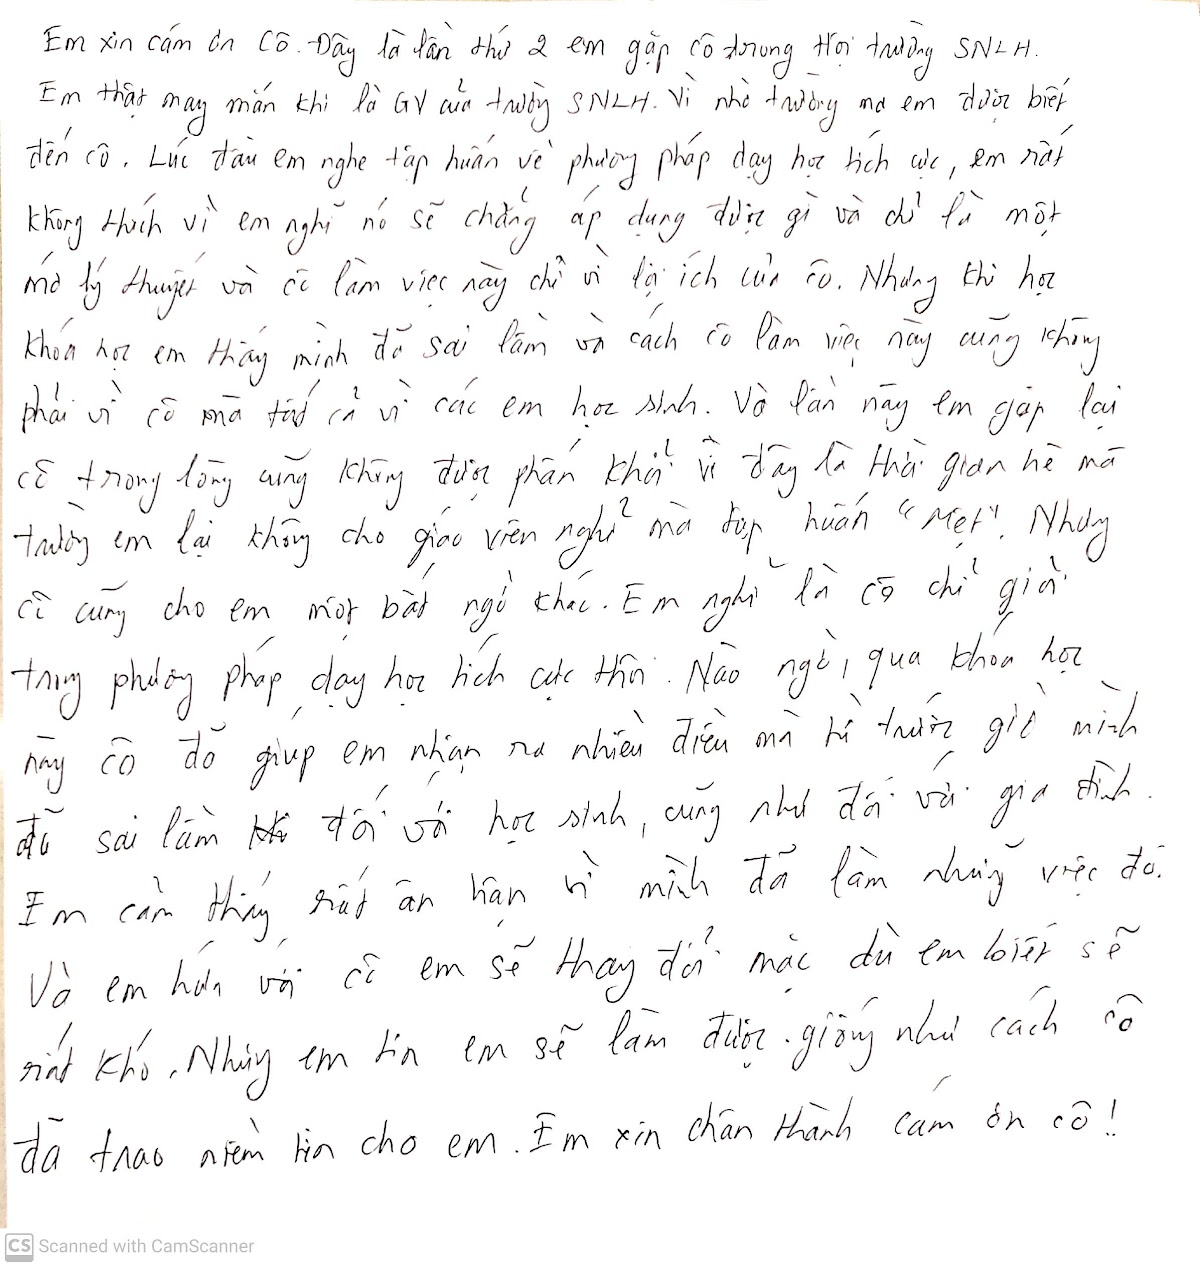 Em xin cám ơn Cô. Đây là lần thứ 2 em gặp cô trong Hội trường SNLH.
Em thật may mắn khi là GV của trường SNLH. Vì nhờ trường mà em được biết
đến cô. Lúc đầu em nghe tập huấn về phương pháp dạy học tích cực, em rất
không thích vì em nghĩ nó sẽ chẳng áp dụng được gì và chỉ là một
mớ lý thuyết và cô làm việc này chỉ vì lợi ích của cô. Nhưng khi học
khóa học em thấy mình đã sai lầm và cách cô làm việc này cũng không
phải vì cô mà tất cả vì các em học sinh. Và lần này em gặp lại
cô trong lòng cũng không được phấn khởi vì đây là thời gian hè mà
trường em lại không cho giáo viên nghỉ mà tập huấn "Mệt". Nhưng
cô cũng cho em một bất ngờ khác. Em nghĩ là cô chỉ giỏi
trong phương pháp dạy học tích cực thôi. Nào ngờ, qua khóa học
này cô đã giúp em nhận ra nhiều điều mà từ trước giờ mình
đã sai lầm đối với học sinh, cũng như đối với gia đình.
Em cảm thấy rất ân hận vì mình đã làm những việc đó.
Và em hứa với cô em sẽ thay đổi mặc dù em biết sẽ
rất khó. Nhưng em tin em sẽ làm được. giống như cách cô
đã trao niềm tin cho em. Em xin chân thành cám ơn cô!
CS Scanned with CamScanner